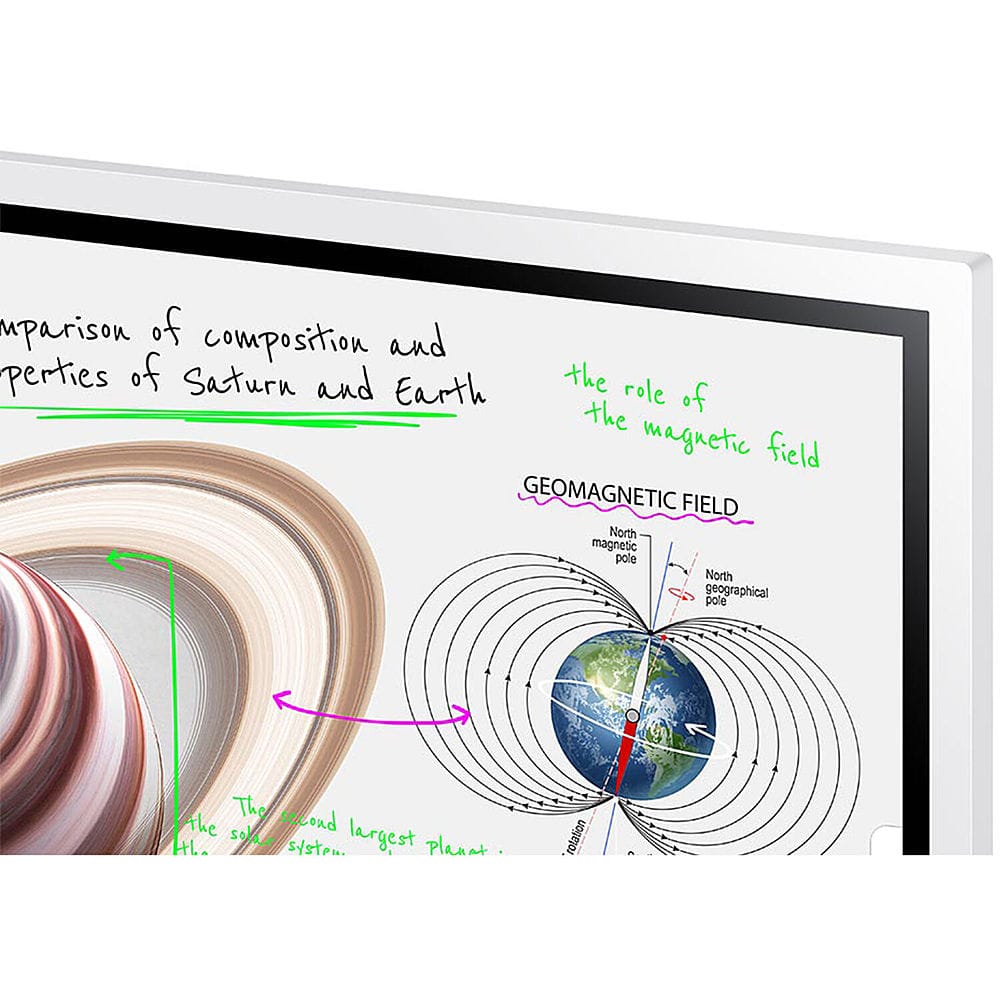 mparison of composition and
perties of Saturn and Earth
the role of
the magnetic field
GEOMAGNETIC FIELD
North
magnetic
pole
North
geographical
pole
The second largest planet
the solar system
the
rotation